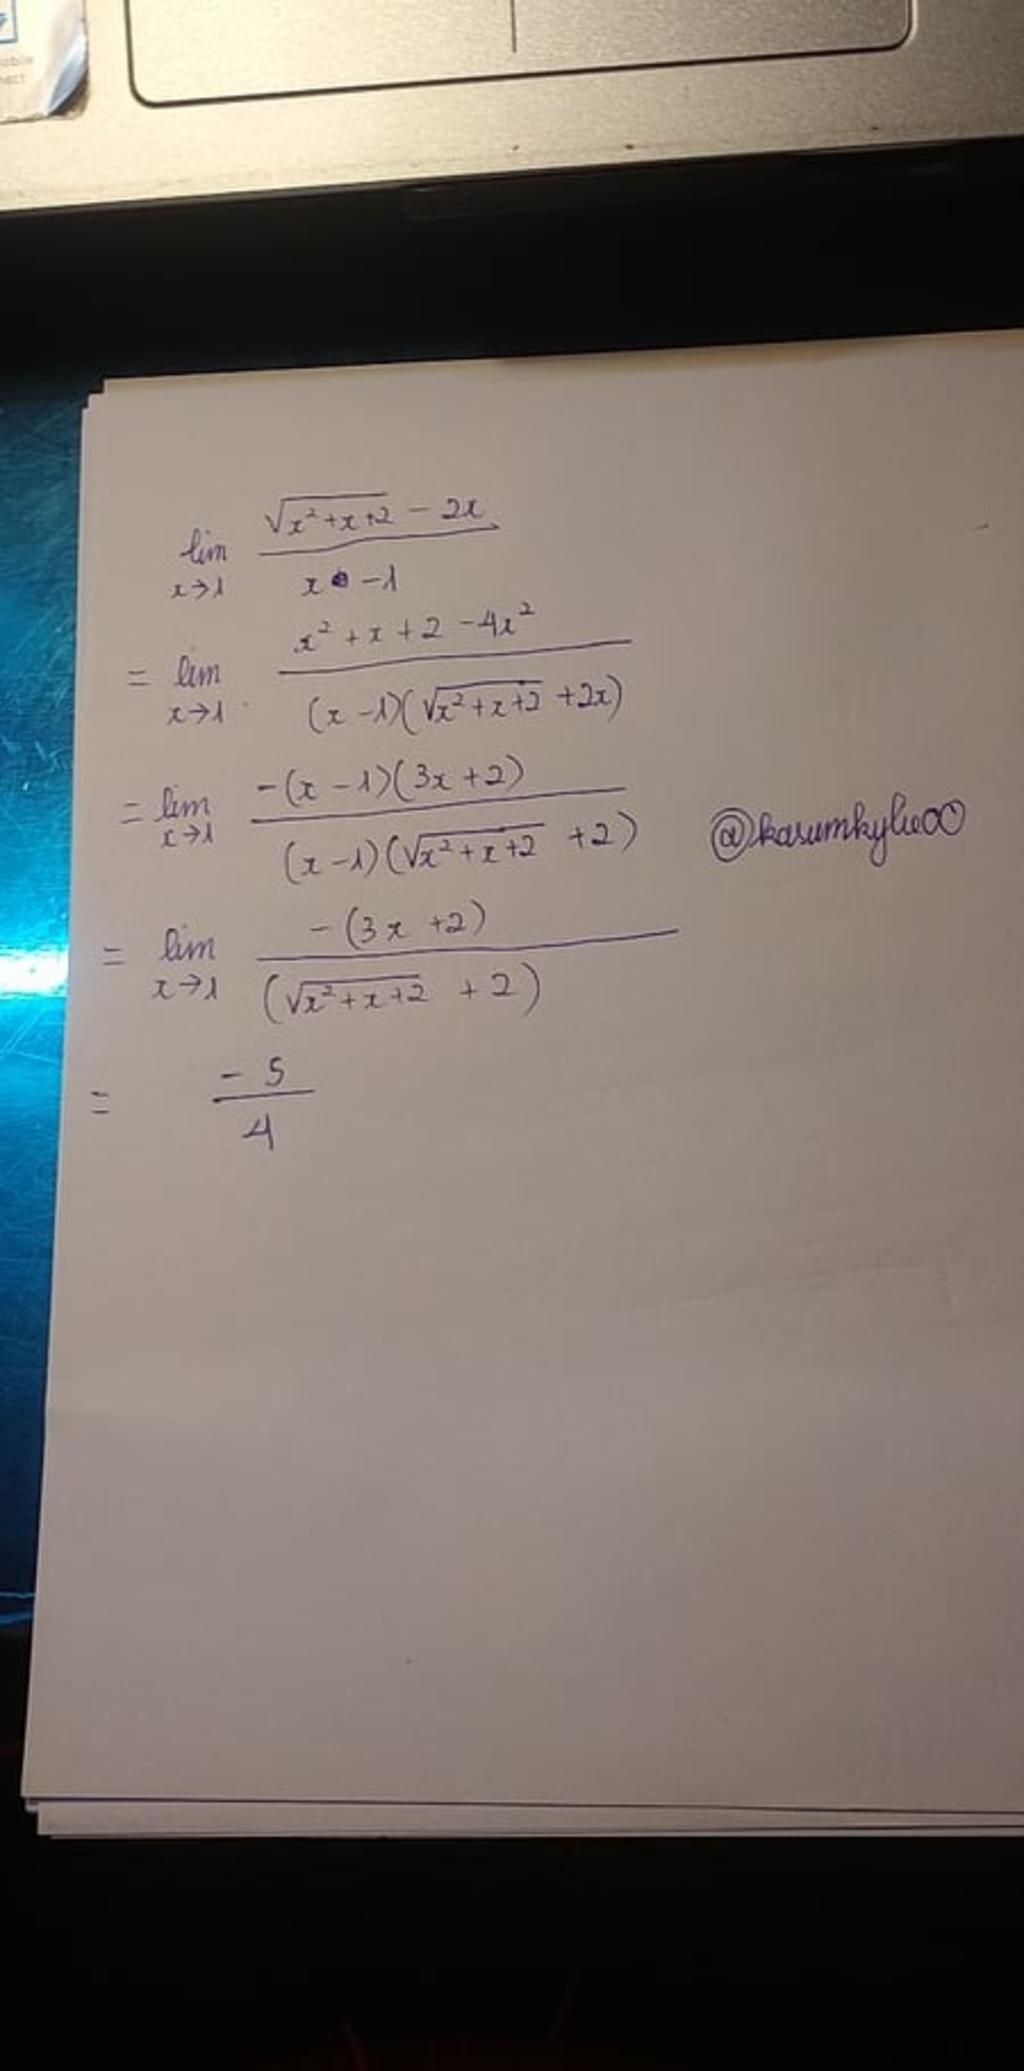 lim x→1 (√(x²+x+2) - 2x) / (x - 1)
= lim x→1 (x² + x + 2 - 4x²) / ((x - 1)(√(x²+x+2) + 2x))
= lim x→1 -(x - 1)(3x + 2) / ((x - 1)(√(x²+x+2) + 2))
= lim x→1 -(3x + 2) / (√(x²+x+2) + 2)
= -5 / 4